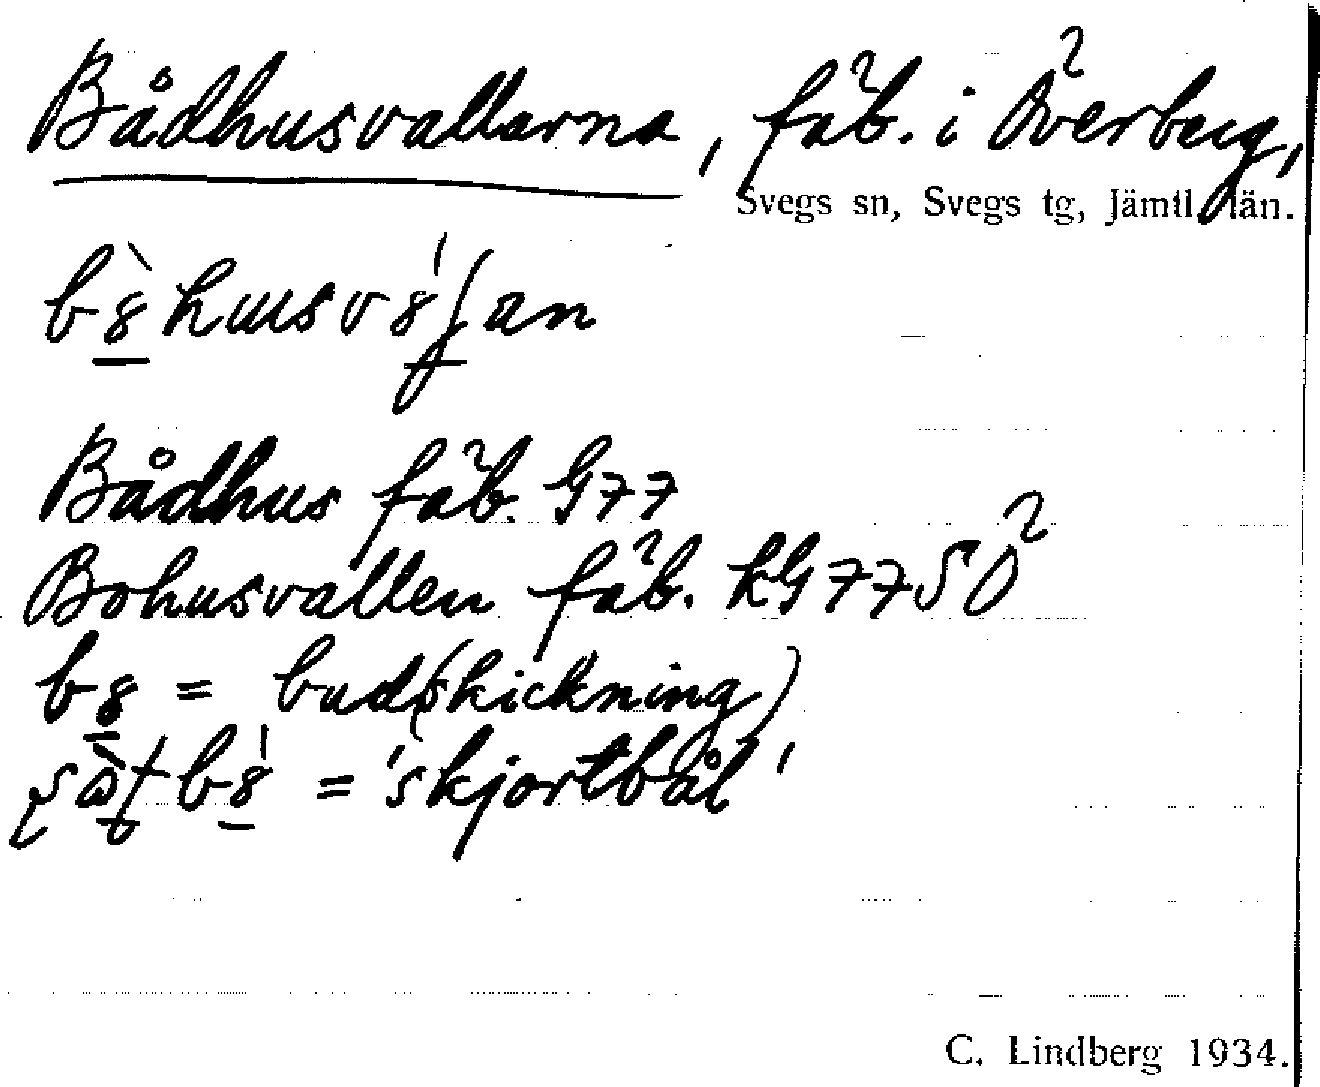 Bådhusvallarna, fäb. i Överberg,
Svegs sn, Svegs tg, Jämtl. län.
Bådhus fäb. G77
Bohusvallen fäb. kG 77SÖ
= bud(skickning)
= 'skjortbål'
C. Lindberg 1934.